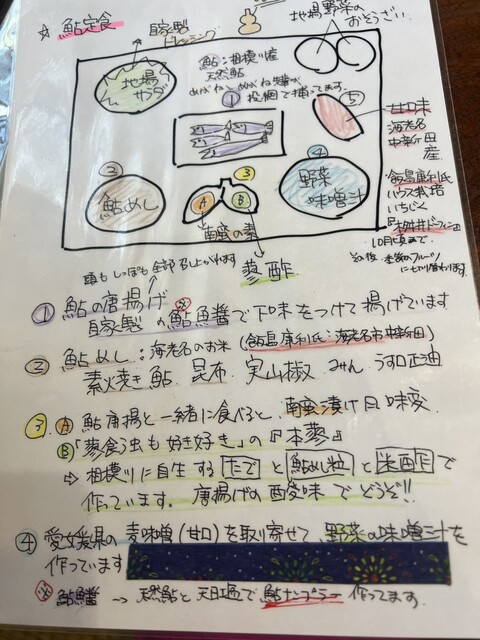 ☆ 鮎定食
自家製
ドレッシング
地場野菜の
おそうざい
地場
サラダ
鮎：相模川産
天然鮎
① 投網で捕ってます。
⑤
甘味
海老名
中新田
産
飯島康利氏
ハウス栽培
いちじく
『桝井ドーフィン』
10月頃まで
②
鮎めし
③
A
B
④
野菜
味噌汁
南蛮の素
蓼酢
頭もしっぽも全部召し上がれます
① 鮎の唐揚げ
自家製の鮎魚醤で下味をつけて揚げています
② 鮎めし：海老名のお米（飯島康利氏：海老名市中新田）
素焼き鮎、昆布、実山椒、みりん、うす口正油
③ A 鮎唐揚と一緒に食べると、南蛮漬け風味変
B 「蓼食う虫も好き好き」の『本蓼』
⇨ 相模川に自生するたでと鮎めし粒と米酢で
作っています。唐揚げの酸変味でどうぞ!!
④ 愛媛県の麦味噌（甘口）を取り寄せて、野菜の味噌汁を
作っています
※ 鮎醤 → 天然鮎と天日塩で鮎ナンプラー作ってます。